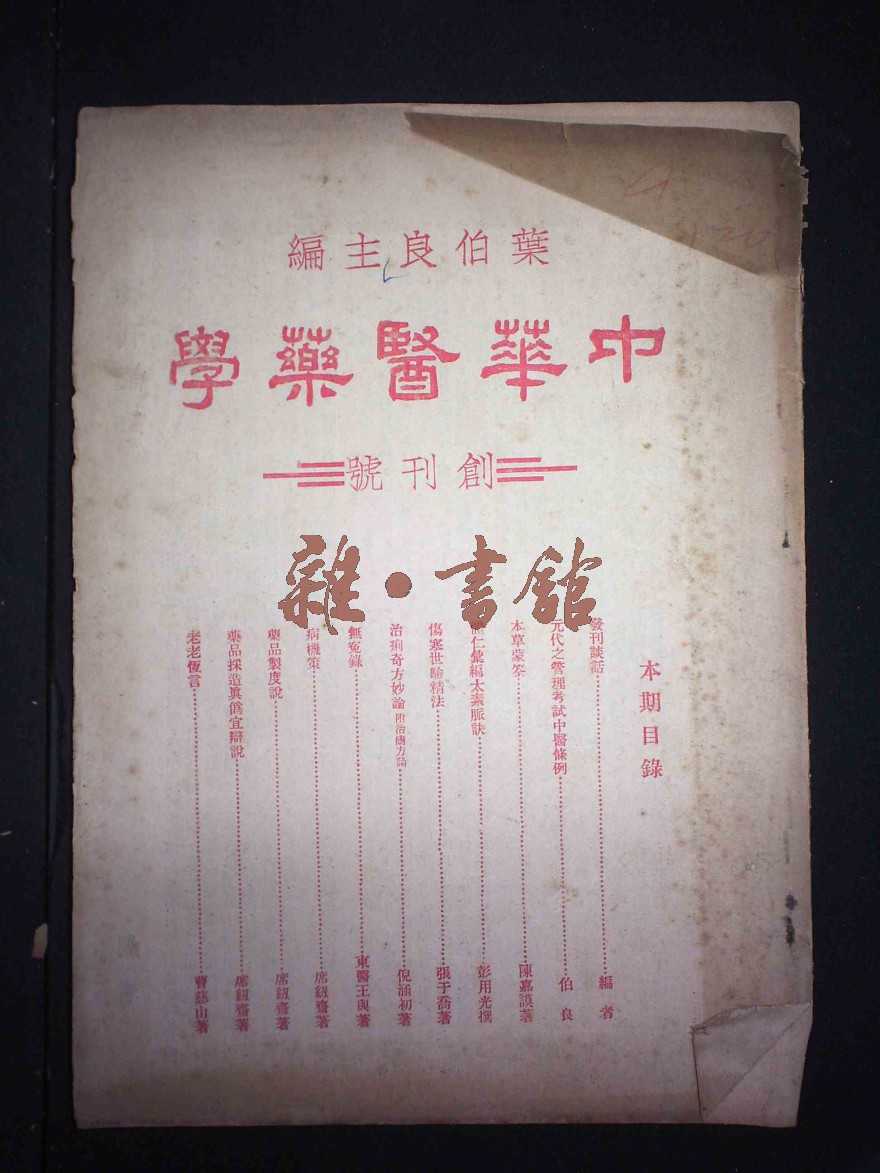 葉伯良主編
中華醫藥學
創刊號
雜·書館
本期目錄
發刊談話 編者
元代之管理考試中醫條例 伯良
本草蒙筌 陳嘉謨著
仁彙編太素脈訣 彭用光撰
傷寒世驗精法 張于喬著
治痢奇方妙論 附治瘧方論 倪涵初著
無冤錄 東醫王與著
病機策 席紉齋著
藥品製度說 席紉齋著
藥品採造眞僞宜辯說 席紉齋著
老老恆言 曹慈山著